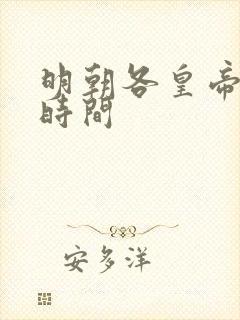 明朝各皇帝
時間
安多洋